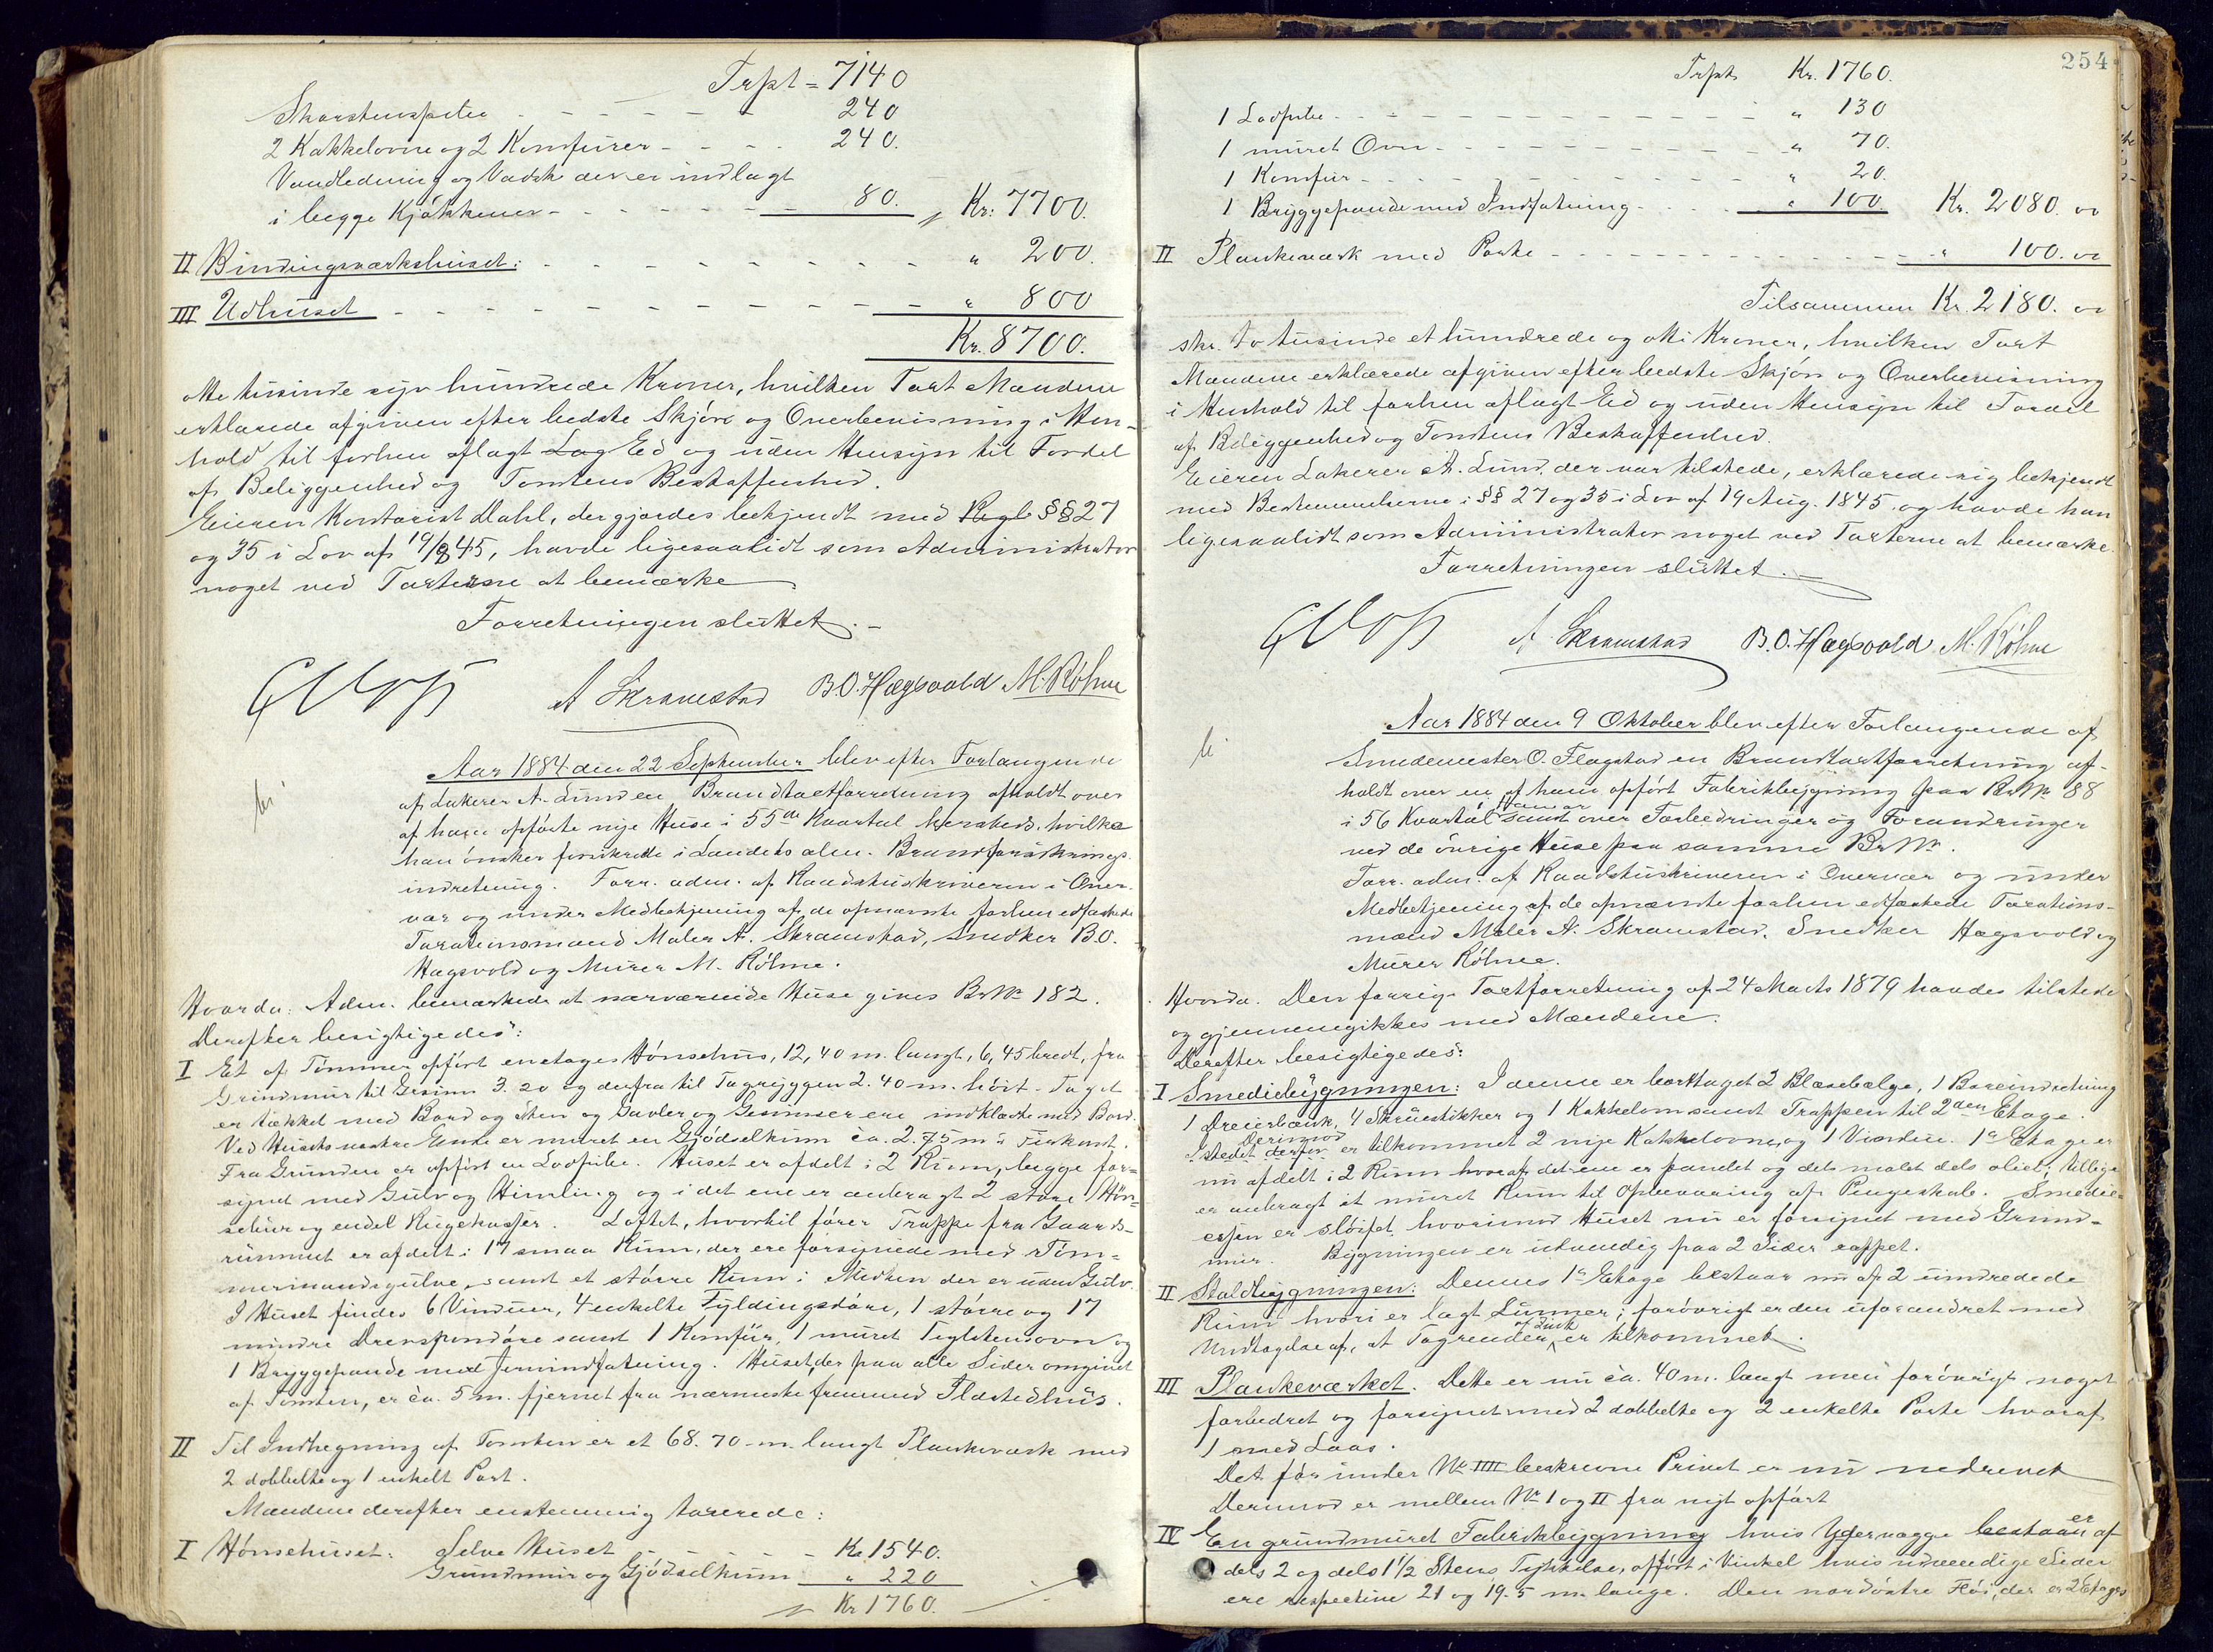 Trpt = 7140
Skorstenspibe - - - - - 240
2 Kakkelovne og 2 Komfurer - - - - 240.
Vandledning og Vadsk der er indlagt
i begge Kjøkkener - - - - - 80. Kr: 7700.
II Bindingsværkshuset: - - - - - - - " 200.
III Udhuset - - - - - - - - " 800
Kr. 8700.
otte tusinde syv hundrede Kroner, hvilken Taxt Mændene
erklærede afgiven efter bedste Skjøn og Overbevisning i Hen-
hold til forhen aflagt Lag Ed og uden Hensyn til Fordel
af Beliggenhed og Tomtens Beskaffenhed.
Eieren Kontorist Dahl, der gjordes bekjendt med Regl §§ 27
og 35 i Lov af 19/8 45, havde ligesaalidt som Administrator
noget ved Taxterne at bemærke
Forretningen sluttet. -
A Skramstad BO. Hægsvold M. Røhne
Aar 1884 den 22 September blev efter Forlangende
af Lakerer A. Lund en Brandtaxtforretning afholdt over
af ham opførte nye Huse i 55de Kvartal hersteds, hvilke
han ønsker forsikrede i Landets alm. Brandforsikrings-
indretning. Forr. adm. af Raadstuskriveren i Over-
vær og under Medbetjening af de opnævnte forhen edfæstede
Taxationsmænd Maler A. Skramstad, Snedker B.O.
Hægsvold og Murer M. Røhne.
Hvorda: Adm. bemærkede at nærværende Huse gives Br № 182.
Derefter besigtigedes:
I Et af Tømmer opført enetages Hønsehus, 12,40 m. langt, 6,45 bredt, fra
Grundmur til Gesims 3.20 og derfra til Tagryggen 2.40 m. høit. Taget
er tækket med Bord og Sten og Gavler og Gesimser ere indklædte med Bord.
Ved Husets nordre Ende er muret en Gjødselkum ca. 2.75 m i Firkant.
Fra Grunden er opført en Lodpibe. Huset er afdelt i 2 Rum, begge for-
synet med Gulv og Himling og i det ene er anbragt 2 store Høn-
sebur og endel Rugekasser. Loftet, hvortil fører Trappe fra Gaards-
rummet er afdelt i 17 smaa Rum, der ere forsynede med Tøm-
mermandsgulve, samt et større Rum i Midten der er uden Gulv.
I Huset findes 6 Vinduer, 4 enkelte Fyldingsdøre, 1 større og 17
mindre Drevspondøre samt 1 Komfür, 1 muret Teglstensovn og
1 Bryggepande med Jernindfatning. Huset, der paa alle Sider omgivet
af Tomten, er ca. 5 m. fjernet fra nærmeste fremmed Ildstedshus.
II Til Indhegning af Tomten er et 68.70 m. langt Plankeværk med
2 dobbelte og 1 enkelt Port.
Mændene derefter enstemmig taxerede:
I Hønsehuset: Selve Huset - - - - - Kr 1540.
Grundmur og Gjødselkum " 220
Kr 1760.
254
Trpt Kr. 1760.
1 Lodpibe - - - - - - - - - " 130
1 muret Ovn - - - - - - - - - " 70.
1 Komfür - - - - - - - - - " 20.
1 Bryggepande med Indfatning - - - " 100 Kr. 2080. 00
II Plankeværk med Porte - - - - - - - - " 100. 00
Tilsammen Kr. 2180. 00
skr. to tusinde et hundrede og otti Kroner, hvilken Taxt
Mændene erklærede afgiven efter bedste Skjøn og Overbevisning
i Henhold til forhen aflagt Ed og uden Hensyn til Fordel
af Beliggenhed og Tomtens Beskaffenhed.
Eieren Lakerer A. Lund, der var tilstede, erklærede sig bekjendt
med Bestemmelserne i §§ 27 og 35 i Lov af 19 Aug. 1845 og havde han
ligesaalidt som Administrator noget ved Taxterne at bemærke.
Forretningen sluttet. -
A. Skramstad B.O. Hægsvold M. Røhne
Aar 1884 den 9 Oktober blev efter Forlangende af
Smedemester O. Flagstad en Brandtaxtforretning af-
holdt over en af ham opført Fabrikbygning paa Br № 88
i 56 Kvartal samt over Forbedringer og Forandringer
ved de øvrige Huse paa samme Br №.
Forr. adm. af Raadstuskriveren i Overvær og under
Medbetjening af de opnævnte forhen edfæstede Taxations-
mænd Maler A. Skramstad, Snedker Hægsvold og
Murer Røhne.
Hvorda. Den forrige Taxtforretning af 24 Marts 1879 havdes tilstede
og gjennemgikkes med Mændene.
Derefter besigtigedes:
I Smediebygningen: I denne er borttaget 2 Blæsebælge, 1 Boreindretning
1 Dreierbænk, 4 Skruestikker og 1 Kakkelovn samt Trappen til 2den Etage.
Derimod
Istedet derfor er tilkommet 2 nye Kakkelovne og 1 Vindue. 1ste Etage er
nu afdelt i 2 Rum hvoraf det ene er panelet og dels malet dels oliet; tillige
er anbragt et muret Rum til Opbevaring af Pengeskab. Smedie-
essen er sløifet, hvorimod Huset nu er forsynet med Grund-
mur. Bygningen er utvendig paa 2 Sider rappet.
II Staldbygningen: Dennes 1ste Etage bestaar nu af 2 uindredede
Rum hvori er lagt Lunner; forøvrigt er den uforandret med
af Zink
Undtagelse af, at Tagrender er tilkommet.
III Plankeværket. Dette er nu ca. 40 m. langt men forøvrigt noget
forbedret og forsynet med 2 dobbelte og 2 enkelte Porte hvoraf
1 med Laas.
Det før under № IIII beskrevne Privet er nu nedrevet
Derimod er mellem № I og II fra nyt opført
IV En grundmuret Fabrikbygning hvis Ydervægge er af
dels 2 og dels 1½ Stens Tykkelse, opført i Vinkel hvis udvendige Sider
ere respective 21 og 19.5 m. lange. Den nordøstre Fløi, der er 2 Etages